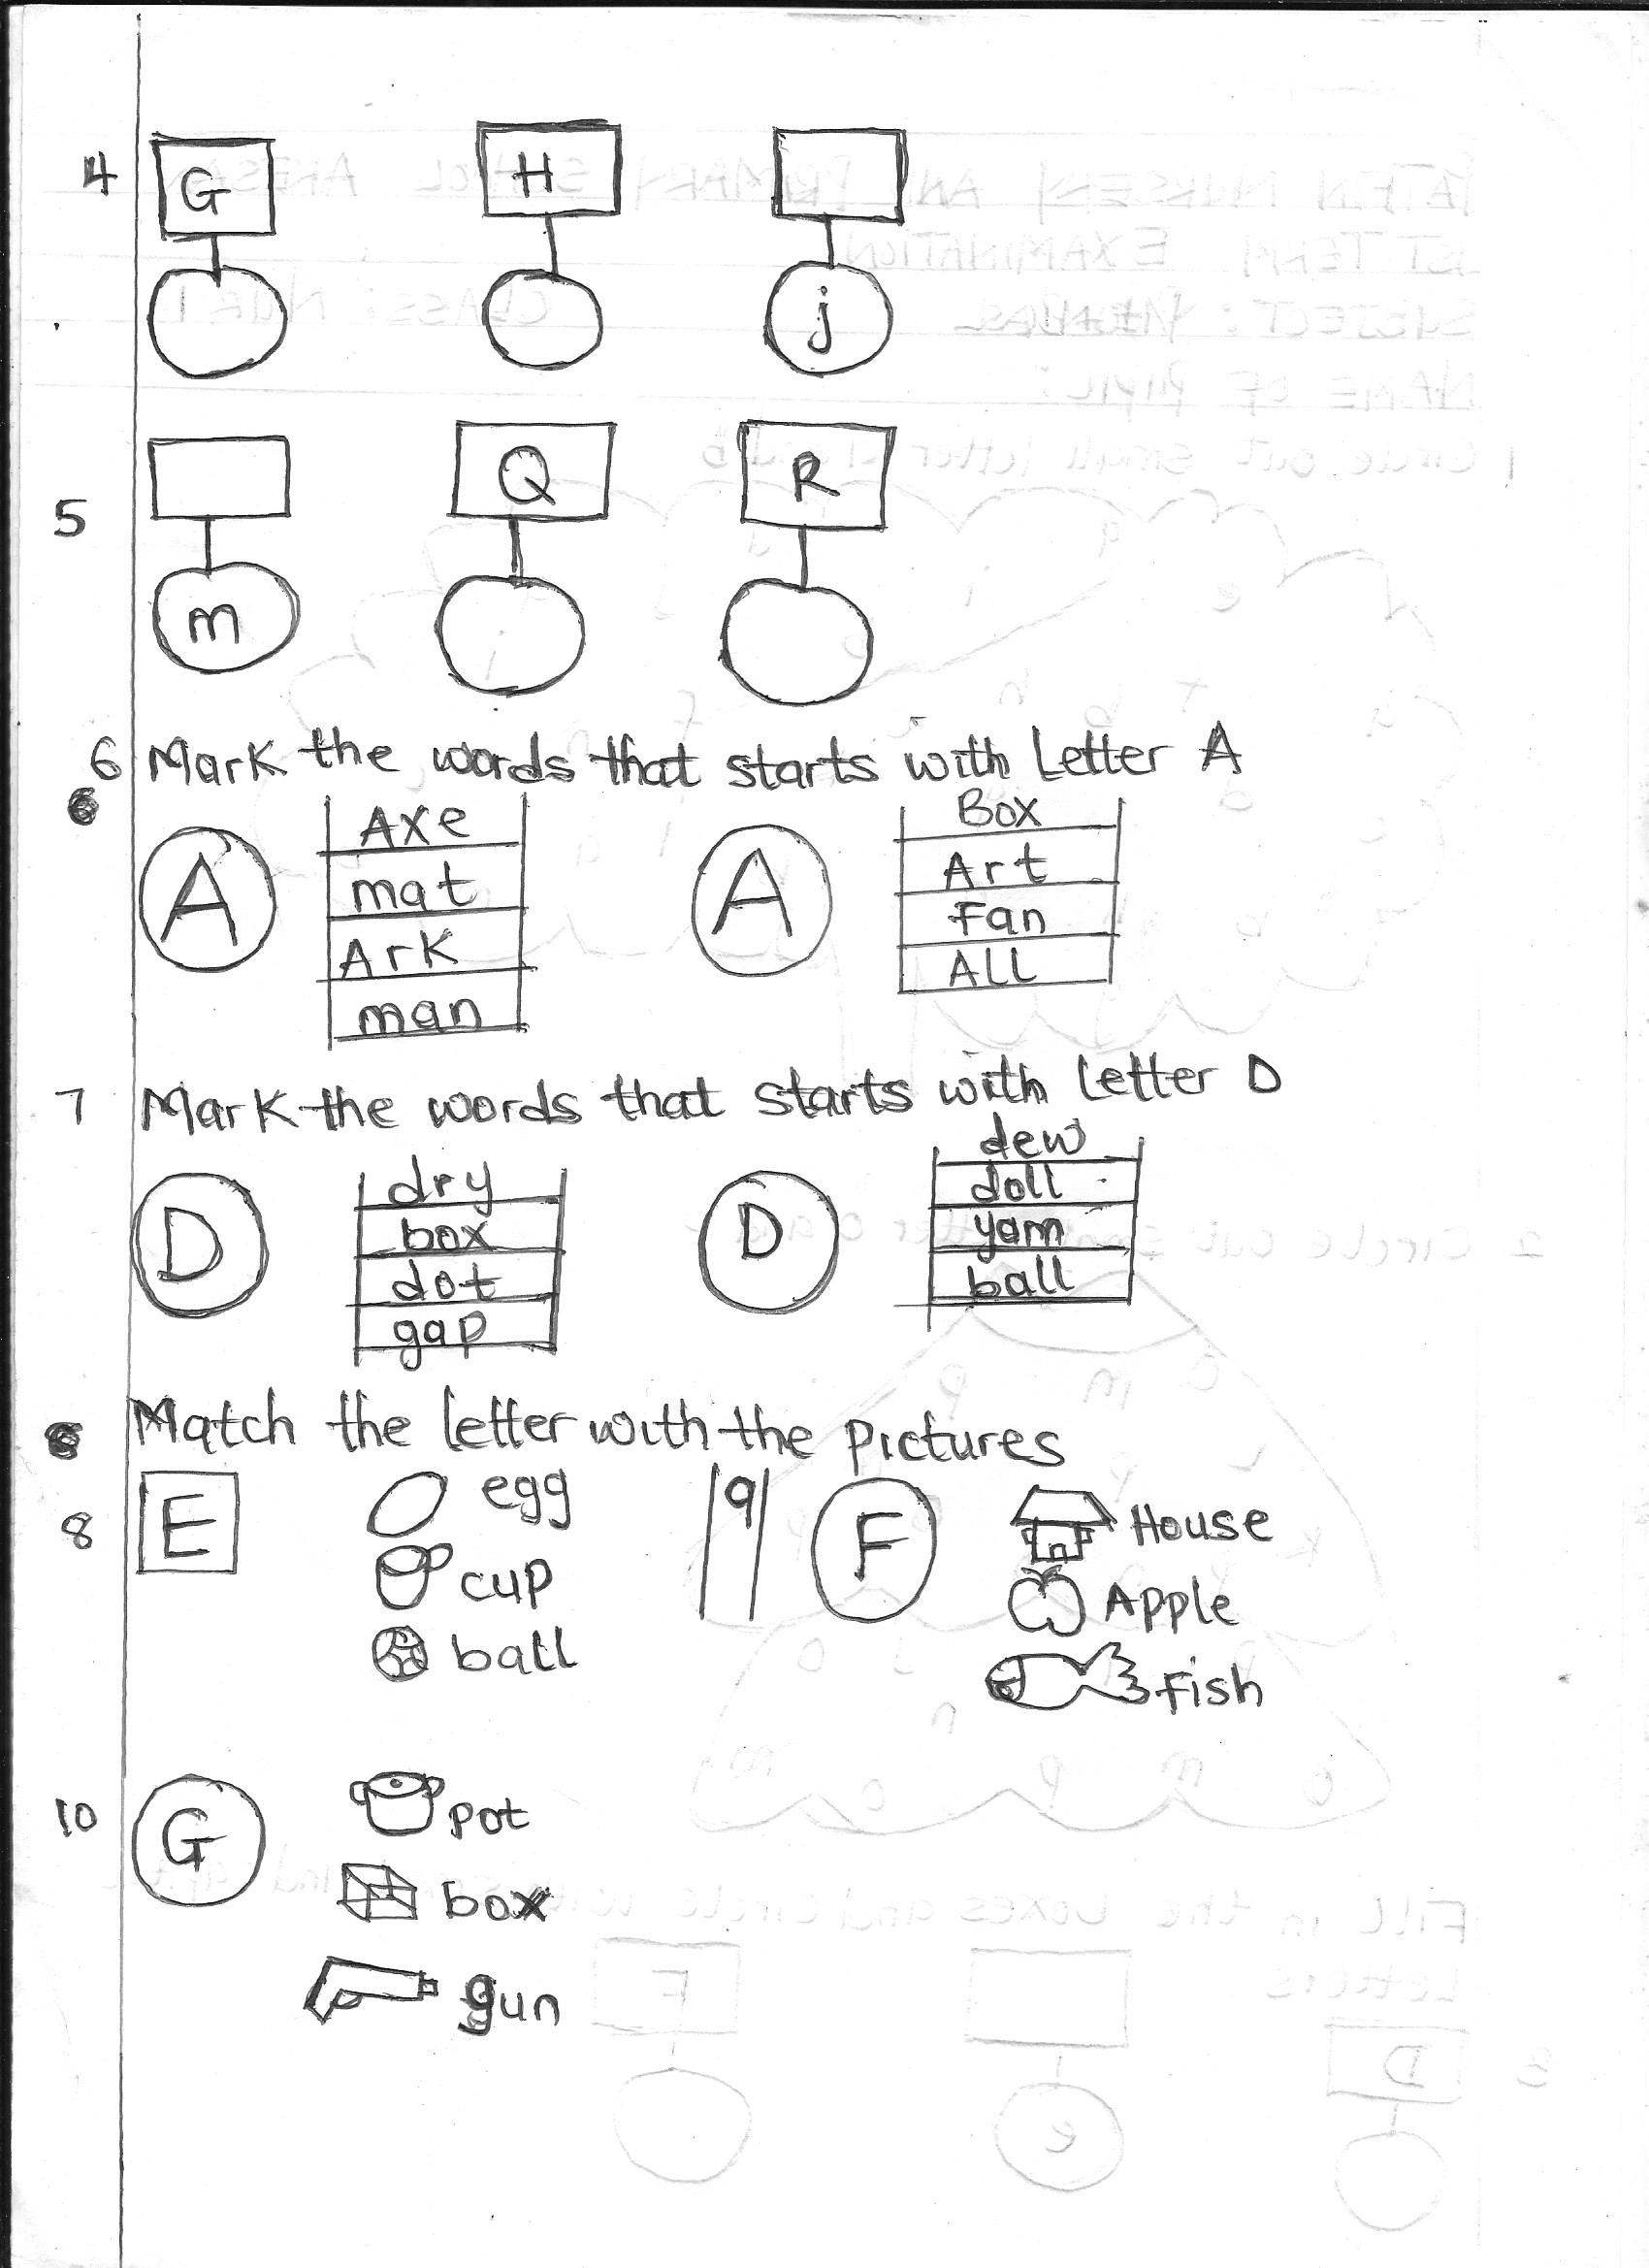 4 G H
j
5 Q R
m
6 Mark the words that starts with Letter A
A Axe
mat
Ark
man
A Box
Art
Fan
ALL
7 Mark the words that starts with letter D
D dry
box
dot
gap
D dew
doll
yam
ball
Match the letter with the Pictures
8 E egg
cup
ball
9 F House
Apple
Fish
10 G pot
box
gun